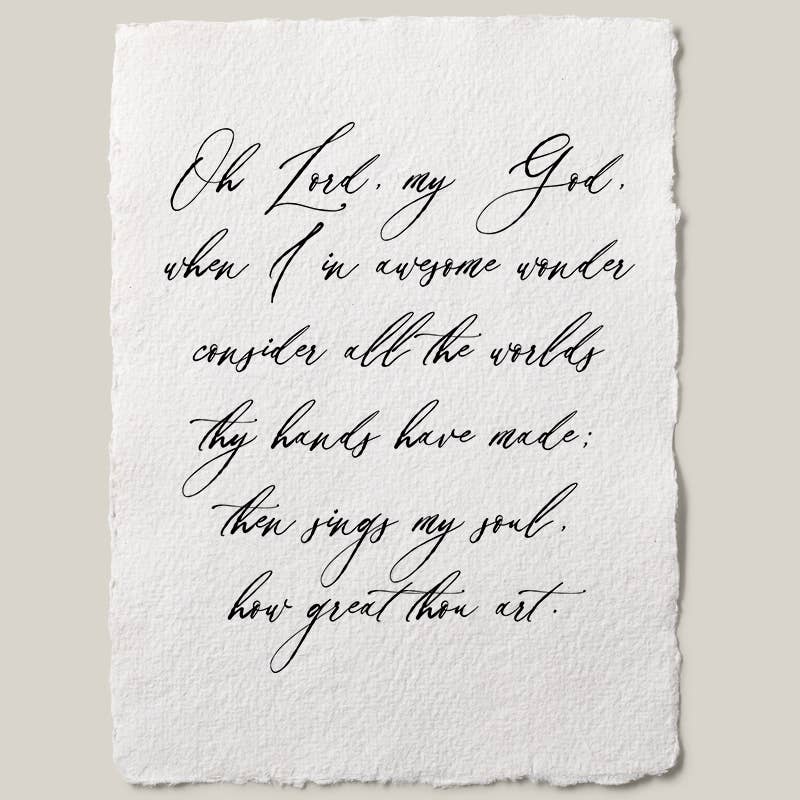 Oh Lord, my God,
when I in awesome wonder
consider all the worlds
thy hands have made;
then sings my soul,
how great thou art.